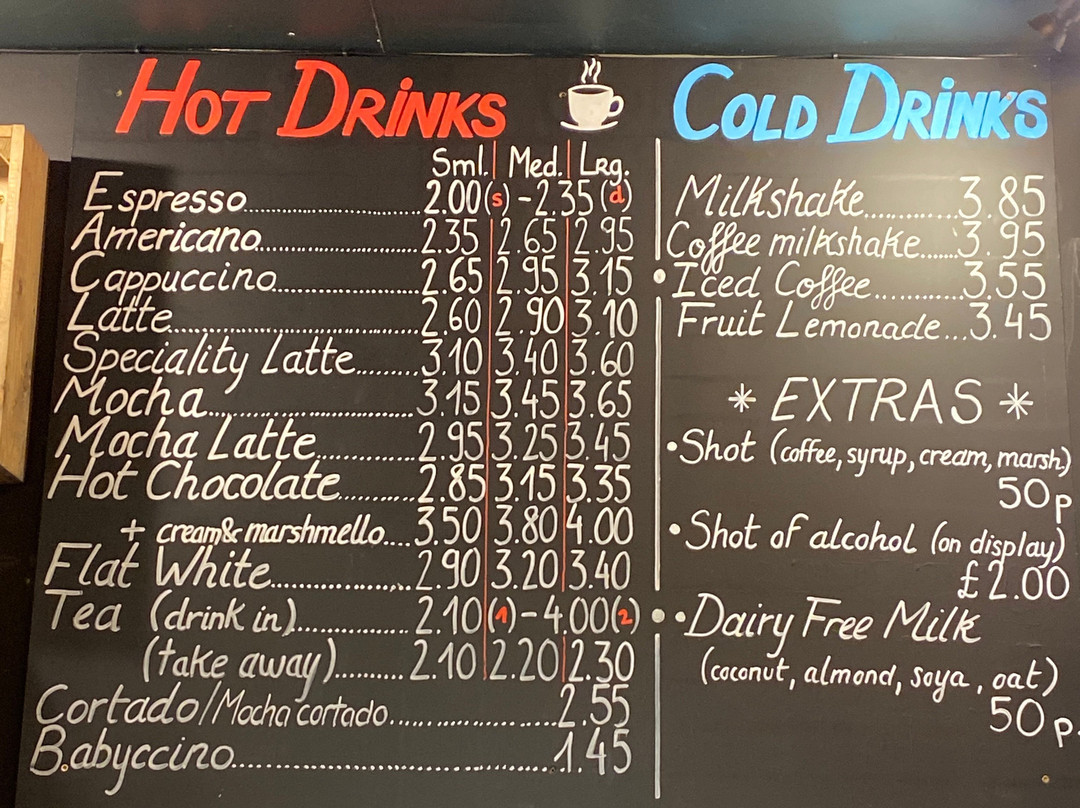 HOT DRINKS
Sml. Med. Lrg.
Espresso 2.00(s) - 2.35(d)
Americano 2.35 2.65 2.95
Cappuccino 2.65 2.95 3.15
Latte 2.60 2.90 3.10
Speciality Latte 3.10 3.40 3.60
Mocha 3.15 3.45 3.65
Mocha Latte 2.95 3.25 3.45
Hot Chocolate 2.85 3.15 3.35
+ cream & marshmello 3.50 3.80 4.00
Flat White 2.90 3.20 3.40
Tea (drink in) 2.10(1) - 4.00(2)
(take away) 2.10 2.20 2.30
Cortado/Mocha cortado 2.55
Babyccino 1.45
COLD DRINKS
Milkshake 3.85
Coffee milkshake 3.95
Iced Coffee 3.55
Fruit Lemonade 3.45
* EXTRAS *
•Shot (coffee, syrup, cream, marsh)
50p
•Shot of alcohol (on display)
£2.00
•Dairy Free Milk
(coconut, almond, soya, oat)
50p.